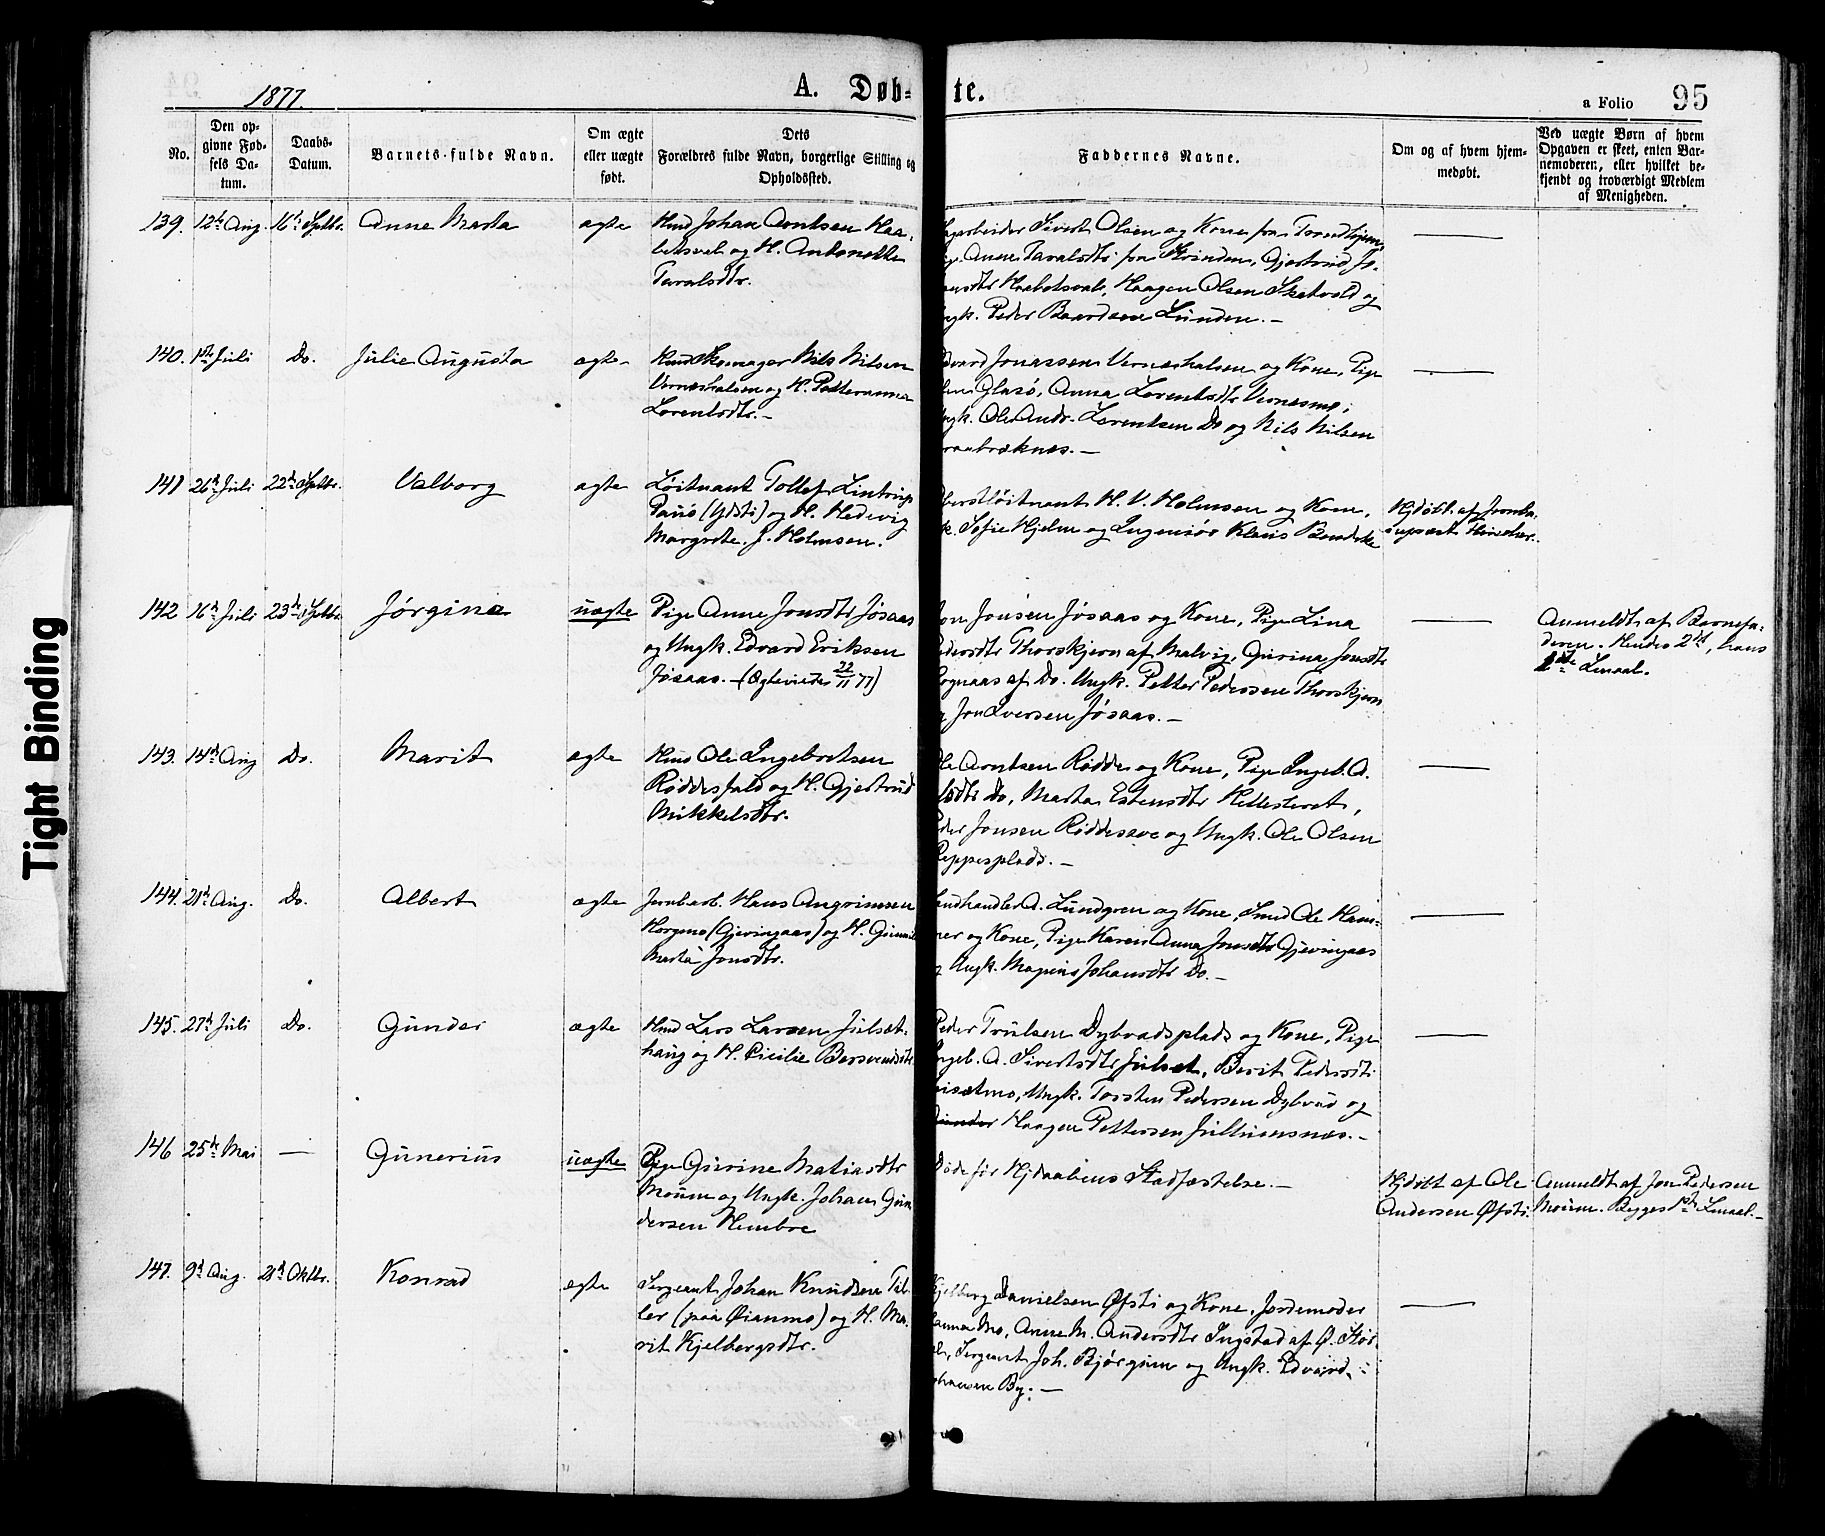 1877.
A. Døb- te.
a Folio 95
No.
Den op-
givne Fød-
sels Da-
tum.
Daabs-
Datum.
Barnets fulde Navn.
Om ægte
eller uægte
født.
Dets
Forældres fulde Navn, borgerlige Stilling og
Opholdssted.
Faddernes Navne.
Om og af hvem hjem-
medøbt.
Ved uægte Børn af hvem
Opgaven er skeet, enten Bar-
nemoderen, eller hvilket be-
kjendt og troværdigt Medlem
af Menigheden.
139. 12te Aug. 16de Sptbr. Anne Marta ægte
Hmd Johan Arntsen Haa-
betsvel og H. Antonette
Taralsdtr.
Sivert Olsen og Kone fra Trondhjem,
Anne Taralsdtr fra Strinden, Gjertrud Jo-
Haabetsvel, Haagen Olsen Skatvold og
Peder Baardsen Lunden. —
140. 1ste Juli Do. Julie Augusta ægte
Hmd Skomager Nils Nilsen
Værneshalsen og H. Petternanna
Lorentsdtr. —
Jonassen Værneshalsen og Kone, Pige
Glasø, Anna Lorentsdtr Værnesmo,
Ole Andr. Lorentsen Do og Nils Nilsen
141 26de Juli 22de Sptbr. Valborg ægte
Løitnant Tollef Lintrup
Paus (Ydsti) og H. Hedevig
Margrete J. Holmsen.
H. V. Holmsen og Kone,
Sofie Hjelm og Ingeniør Klaus Bendeke
Hjdøbt af Jernba-
142 16de Juli 23de Sptbr Jørgine uægte
Pige Anne Jonsdtr Jøsaas
og Ungk. Edvard Eriksen
Jøsaas. — (Ægteviedes 22/11 77)
Jonsen Jøsaas og Kone, Pige Lina
Thorskjern af Malvig, Gurina Jonsdtr
af Do. Ungk. Petter Pedersen Thorskjern
Jon Iversen Jøsaas. —
Anmeldt af Barnefa-
deren. Hendes 2det, hans
1ste Leiermaal.
143. 14de Aug Do. Marit ægte
Hmd Ole Ingebretsen
Røddesfald og H. Gjertrud
Mikkelsdtr.
Arntsen Rødde og Kone, Pige Ingeb. A.
Do, Marta Estensdtr Hellesteret,
Jonsen Røddesave og Ungk. Ole Olsen
144. 21de Aug. Do. Albert ægte
Jernbarb. Hans Angrimsen
Horgmo (Gjevingaas) og H.
Marta Jonsdtr.
A. Lundgren og Kone, Smed Ole Ham-
mer og Kone, Pige Karen Anna Jonsdtr Gjevingaas
Ungk. Johansdtr Do. —
145. 27de Juli Do. Gunder ægte
Hmd Lars Larsen Julset-
haug og H. Cicilie Bersvendsdtr
Peder Trulsen Dybvadsplads og Kone, Pige
Ingeb. A. Sivertsdtr Julset, Berit Pedersdtr
Ungk. Torsten Pedersen Dybvad og
Haagen Pettersen
146 25de Mai — Gunerius uægte
Pige Gurine Matiasdtr
Mouum og Ungk. Johan Gun-
dersen Hembre
Døde før Hjdaabens Stadfæstelse. —
Hjdøbt af Ole
Andersen Øfsti.
Anmeldt af Jon Pedersen
Begges 1ste
147. 9de Aug. 21de Oktbr. Konrad ægte
Sergeant Johan Knudsen Til-
ler (paa Øianmo) og H. Ma-
rit Kjelbergsdtr.
Kjelberg Danielsen Øfsti og Kone, Jordemoder
Hanna Mo, Anne M. Andersdtr Ingstad af Ø. Stør-
Sergeant Joh. Bjørgum og Ungk. Edvard
Johansen By. —
Tight Binding